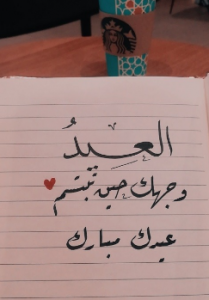 العيدُ
وجهك حين تبتسم
عيدك مبارك